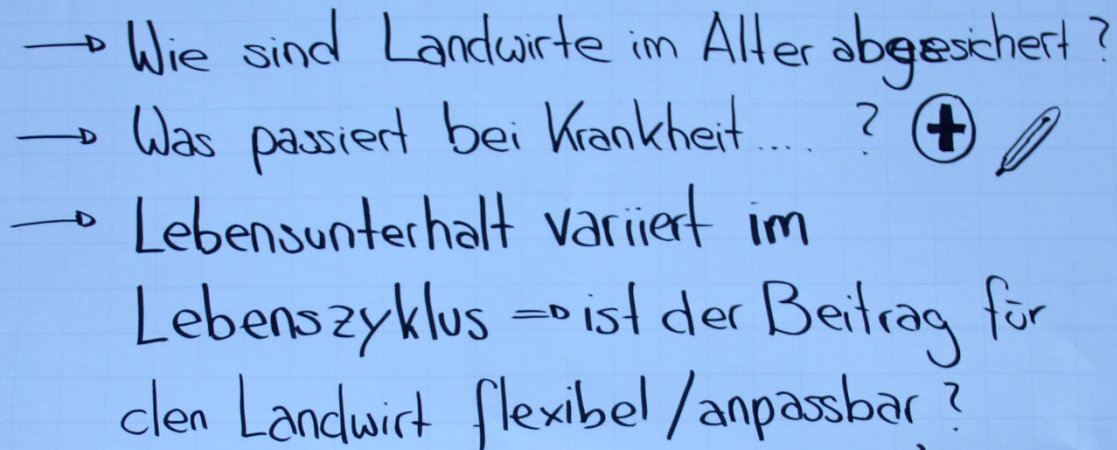 → Wie sind Landwirte im Alter abgesichert?
→ Was passiert bei Krankheit.... ?
→ Lebensunterhalt variiert im
Lebenszyklus ⇒ ist der Beitrag für
den Landwirt flexibel/anpassbar?